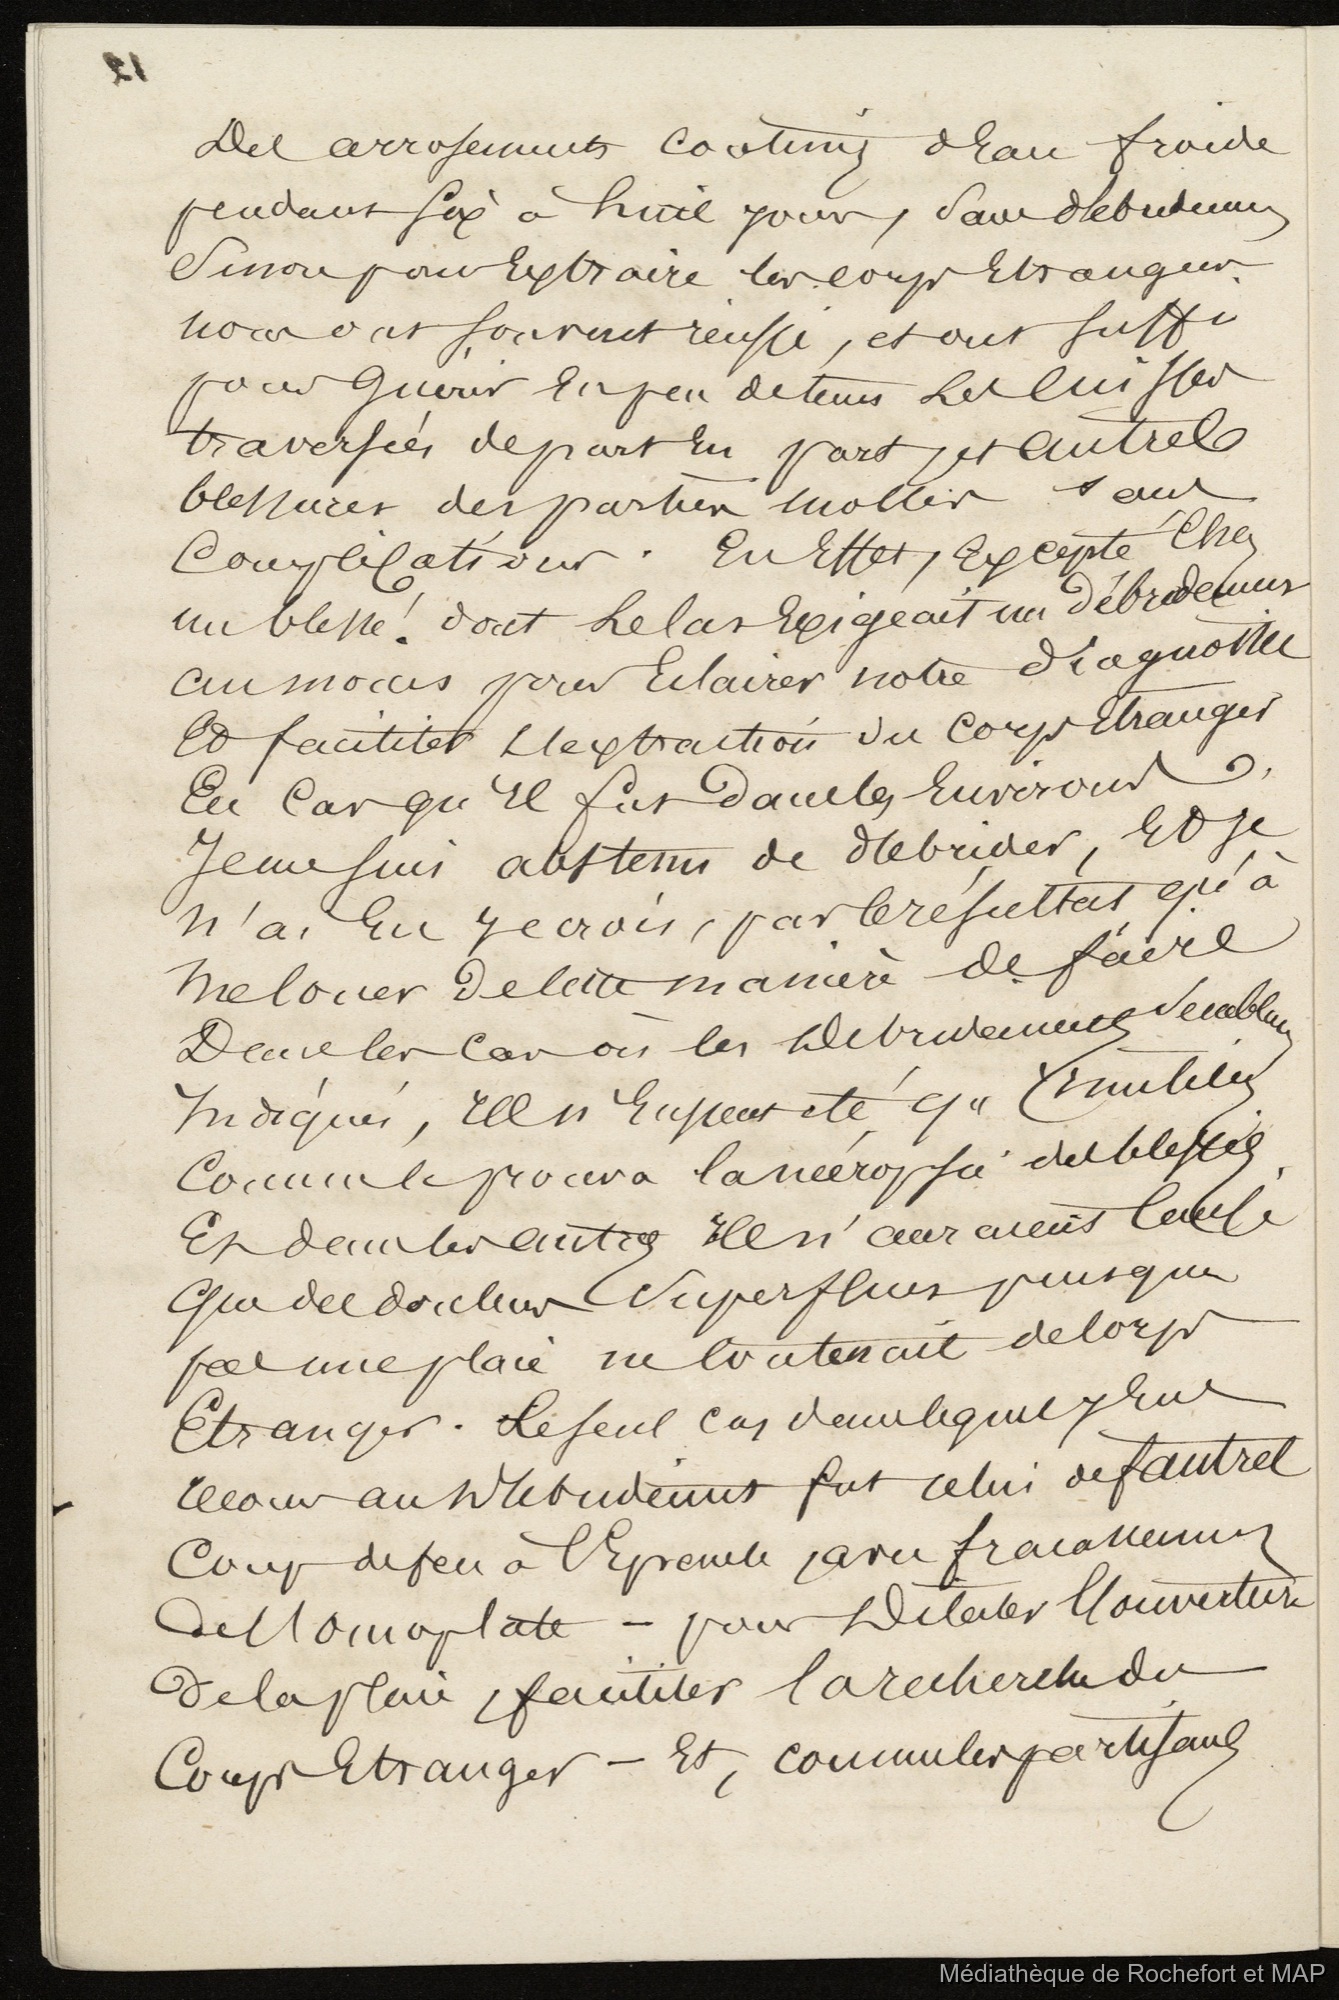 Des arrosements continus d'Eau froide
pendant six à huit jours, sans débridemens
Sinon pour Extraire les corps Etrangers.
nous ont souvent réussi, et ont suffi
pour Guérir En peu de tems Les Cuisses
traversées de part En part, et autres
blessures des parties molles sans
Complications. En Effet, Excepté Chez
un blessé. dont Le Cas Exigeait un débridement
au moins pour Eclairer notre diagnostic
Et faciliter L'extraction du Corps Etranger
En Cas qu'Il fut Dans les Environs
Je me suis abstenu de débrider, Et je
N'ai Eu je crois, par le résultat qu'à
me louer De Cette manière de faire
Dans les Cas où les Débridemens Semblens
Indiqués, Ils n'Eussent été qu'Inutiles
Comme le prouva la nécropsie des blessés,
Et dans les autres Ils n'auraient Causé
Que des douleurs Superflues puisque
pas une plaie ne Contenait de Corps
Etranger. Le seul cas dans lequel j'Eus
recours au Débridement fut celui de
Coup de feu à l'Epaule, avec fracassement
De l'Omoplate – pour Dilater l'ouverture
De la plaie, faciliter la recherche du
Corps Etranger – Et, comme les partisans
Médiathèque de Rochefort et MAP